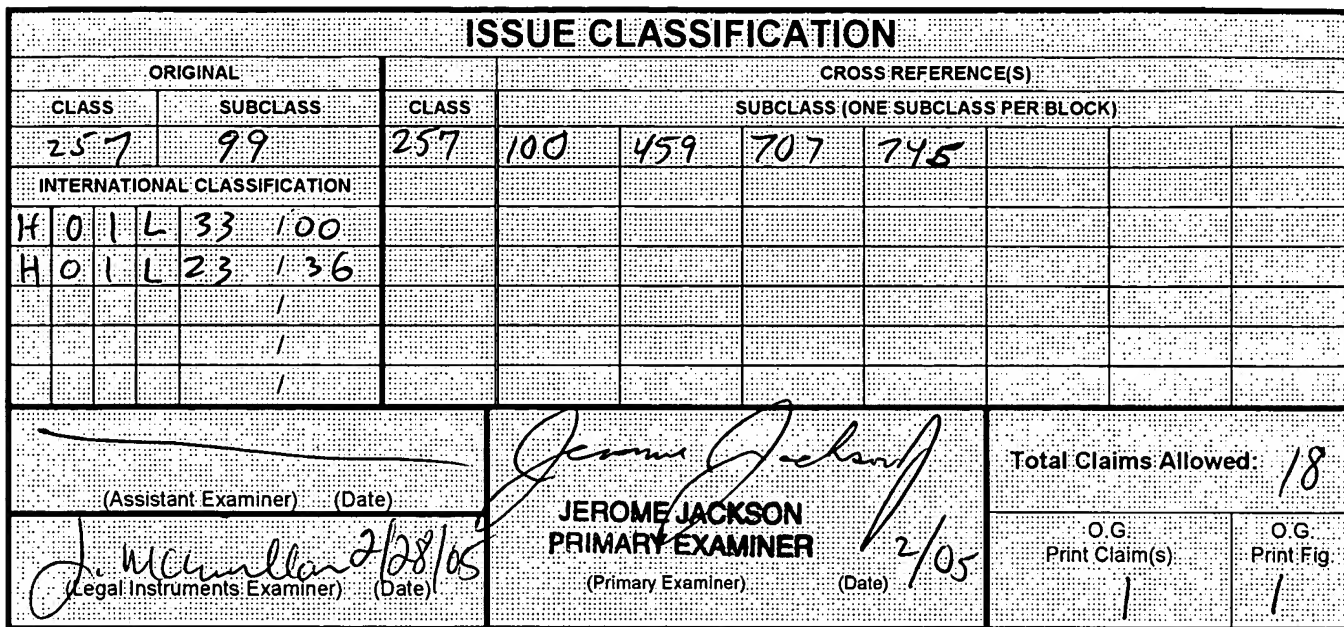 ISSUE CLASSIFICATION
ORIGINAL CROSS REFERENCE(S)
CLASS SUBCLASS CLASS SUBCLASS (ONE SUBCLASS PER BLOCK)
257 99 257 100 459 707 745
INTERNATIONAL CLASSIFICATION
H 0 1 L 33 / 00
H 0 1 L 23 / 36
/
/
/
(Assistant Examiner) (Date)
J. McMillan 2/28/05
(Legal Instruments Examiner) (Date)
Jerome Jackson
JEROME JACKSON
PRIMARY EXAMINER
2/05
(Primary Examiner) (Date)
Total Claims Allowed: 18
O.G. Print Claim(s)
1
O.G. Print Fig.
1